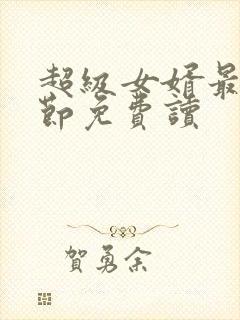 超級女婿最
節免費讀
賀勇余